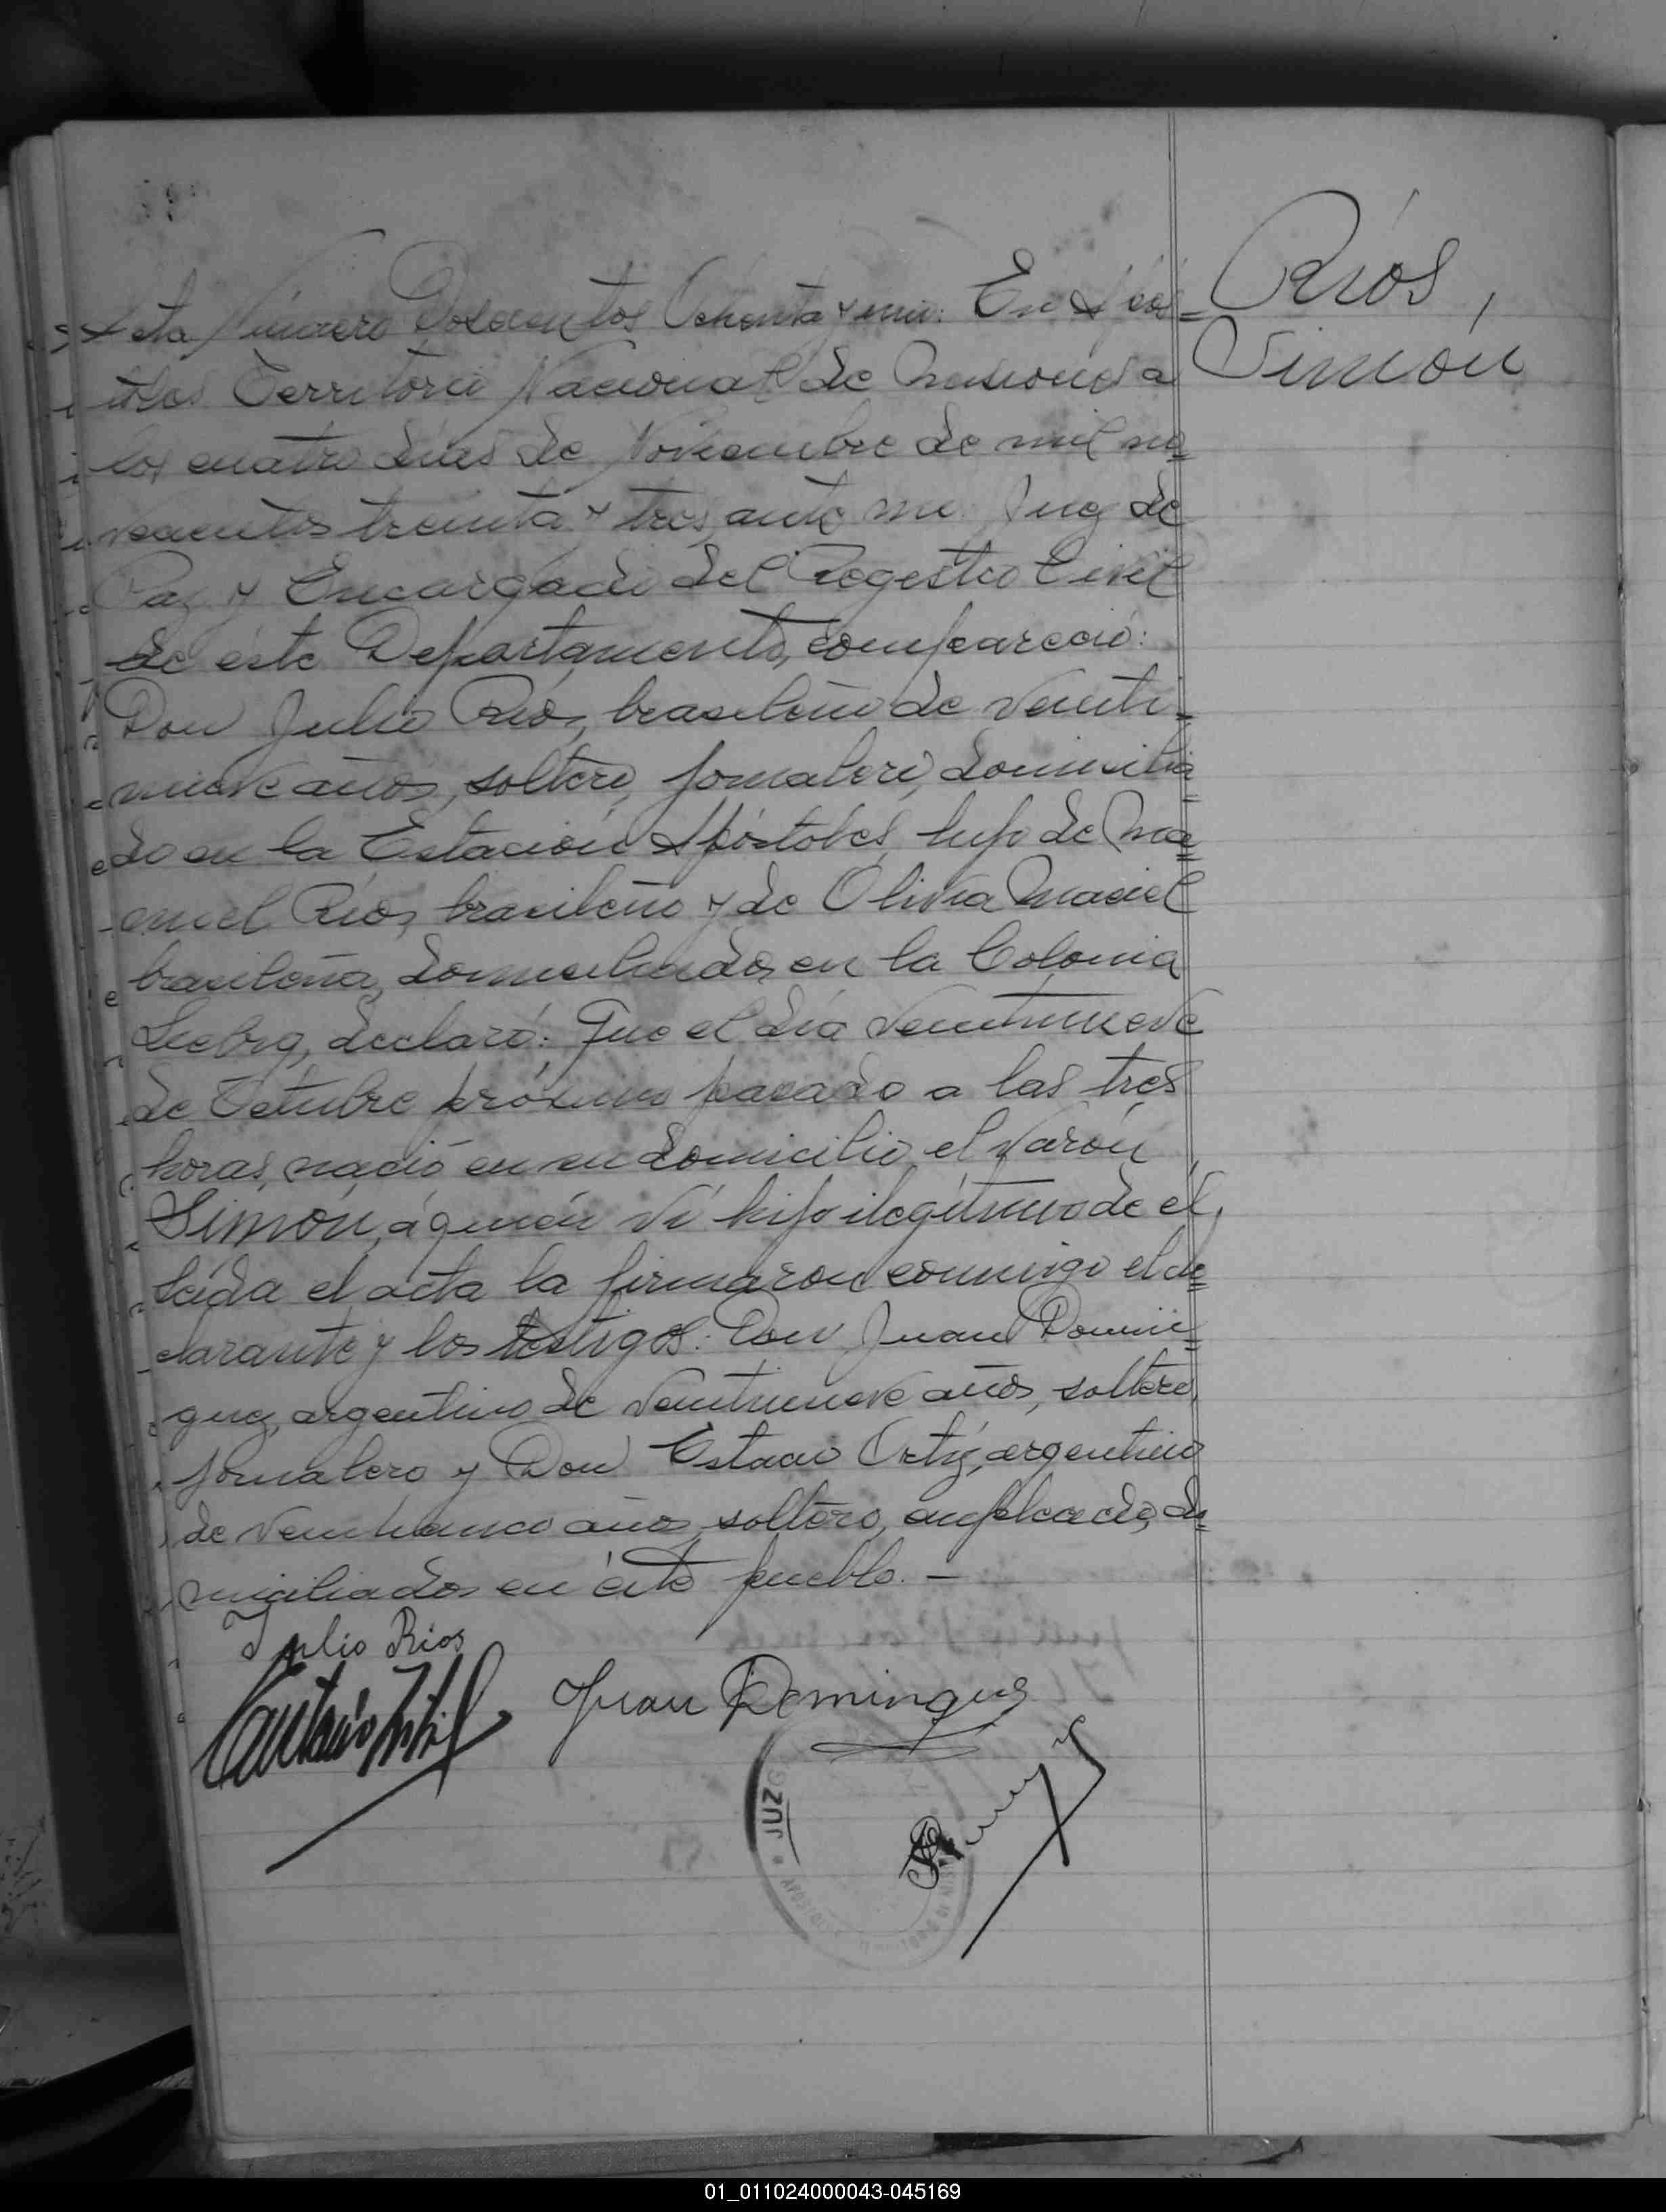 Ríos,
Simón
Acta Número Doscientos Ochenta y uno: En Após=
toles Territorio Nacional de Misiones a
los cuatro días de Noviembre de mil no=
vecientos treinta y tres, ante mi Juez de
Paz y Encargado del Registro Civil
de éste Departamento, compareció:
Don Julio Ríos, brasileño de veinti=
nueve años, soltero, jornalero, domicilia=
do en la Estación Apóstoles, hijo de Ma=
nuel Ríos, brasileño y de Olivia Maciel
brasileña, domiciliados en la Colonia
Liebig, declaró: Que el día veintinueve
de Octubre próximo pasado a las tres
horas, nació en su domicilio, el varón
Simón, á quien ví hijo ilegítimo de el,
leída el acta la firmaron conmigo el de=
clarante y los testigos: Don Juan Domin=
guez, argentino de veintinueve años, soltero,
jornalero y Don Ortíz, argentino
de veinticinco años, soltero, empleado, do=
miciliados en éste pueblo. —
Julio Rios
Juan Dominguez
JUZG
APOSTOLES
01_011024000043-045169